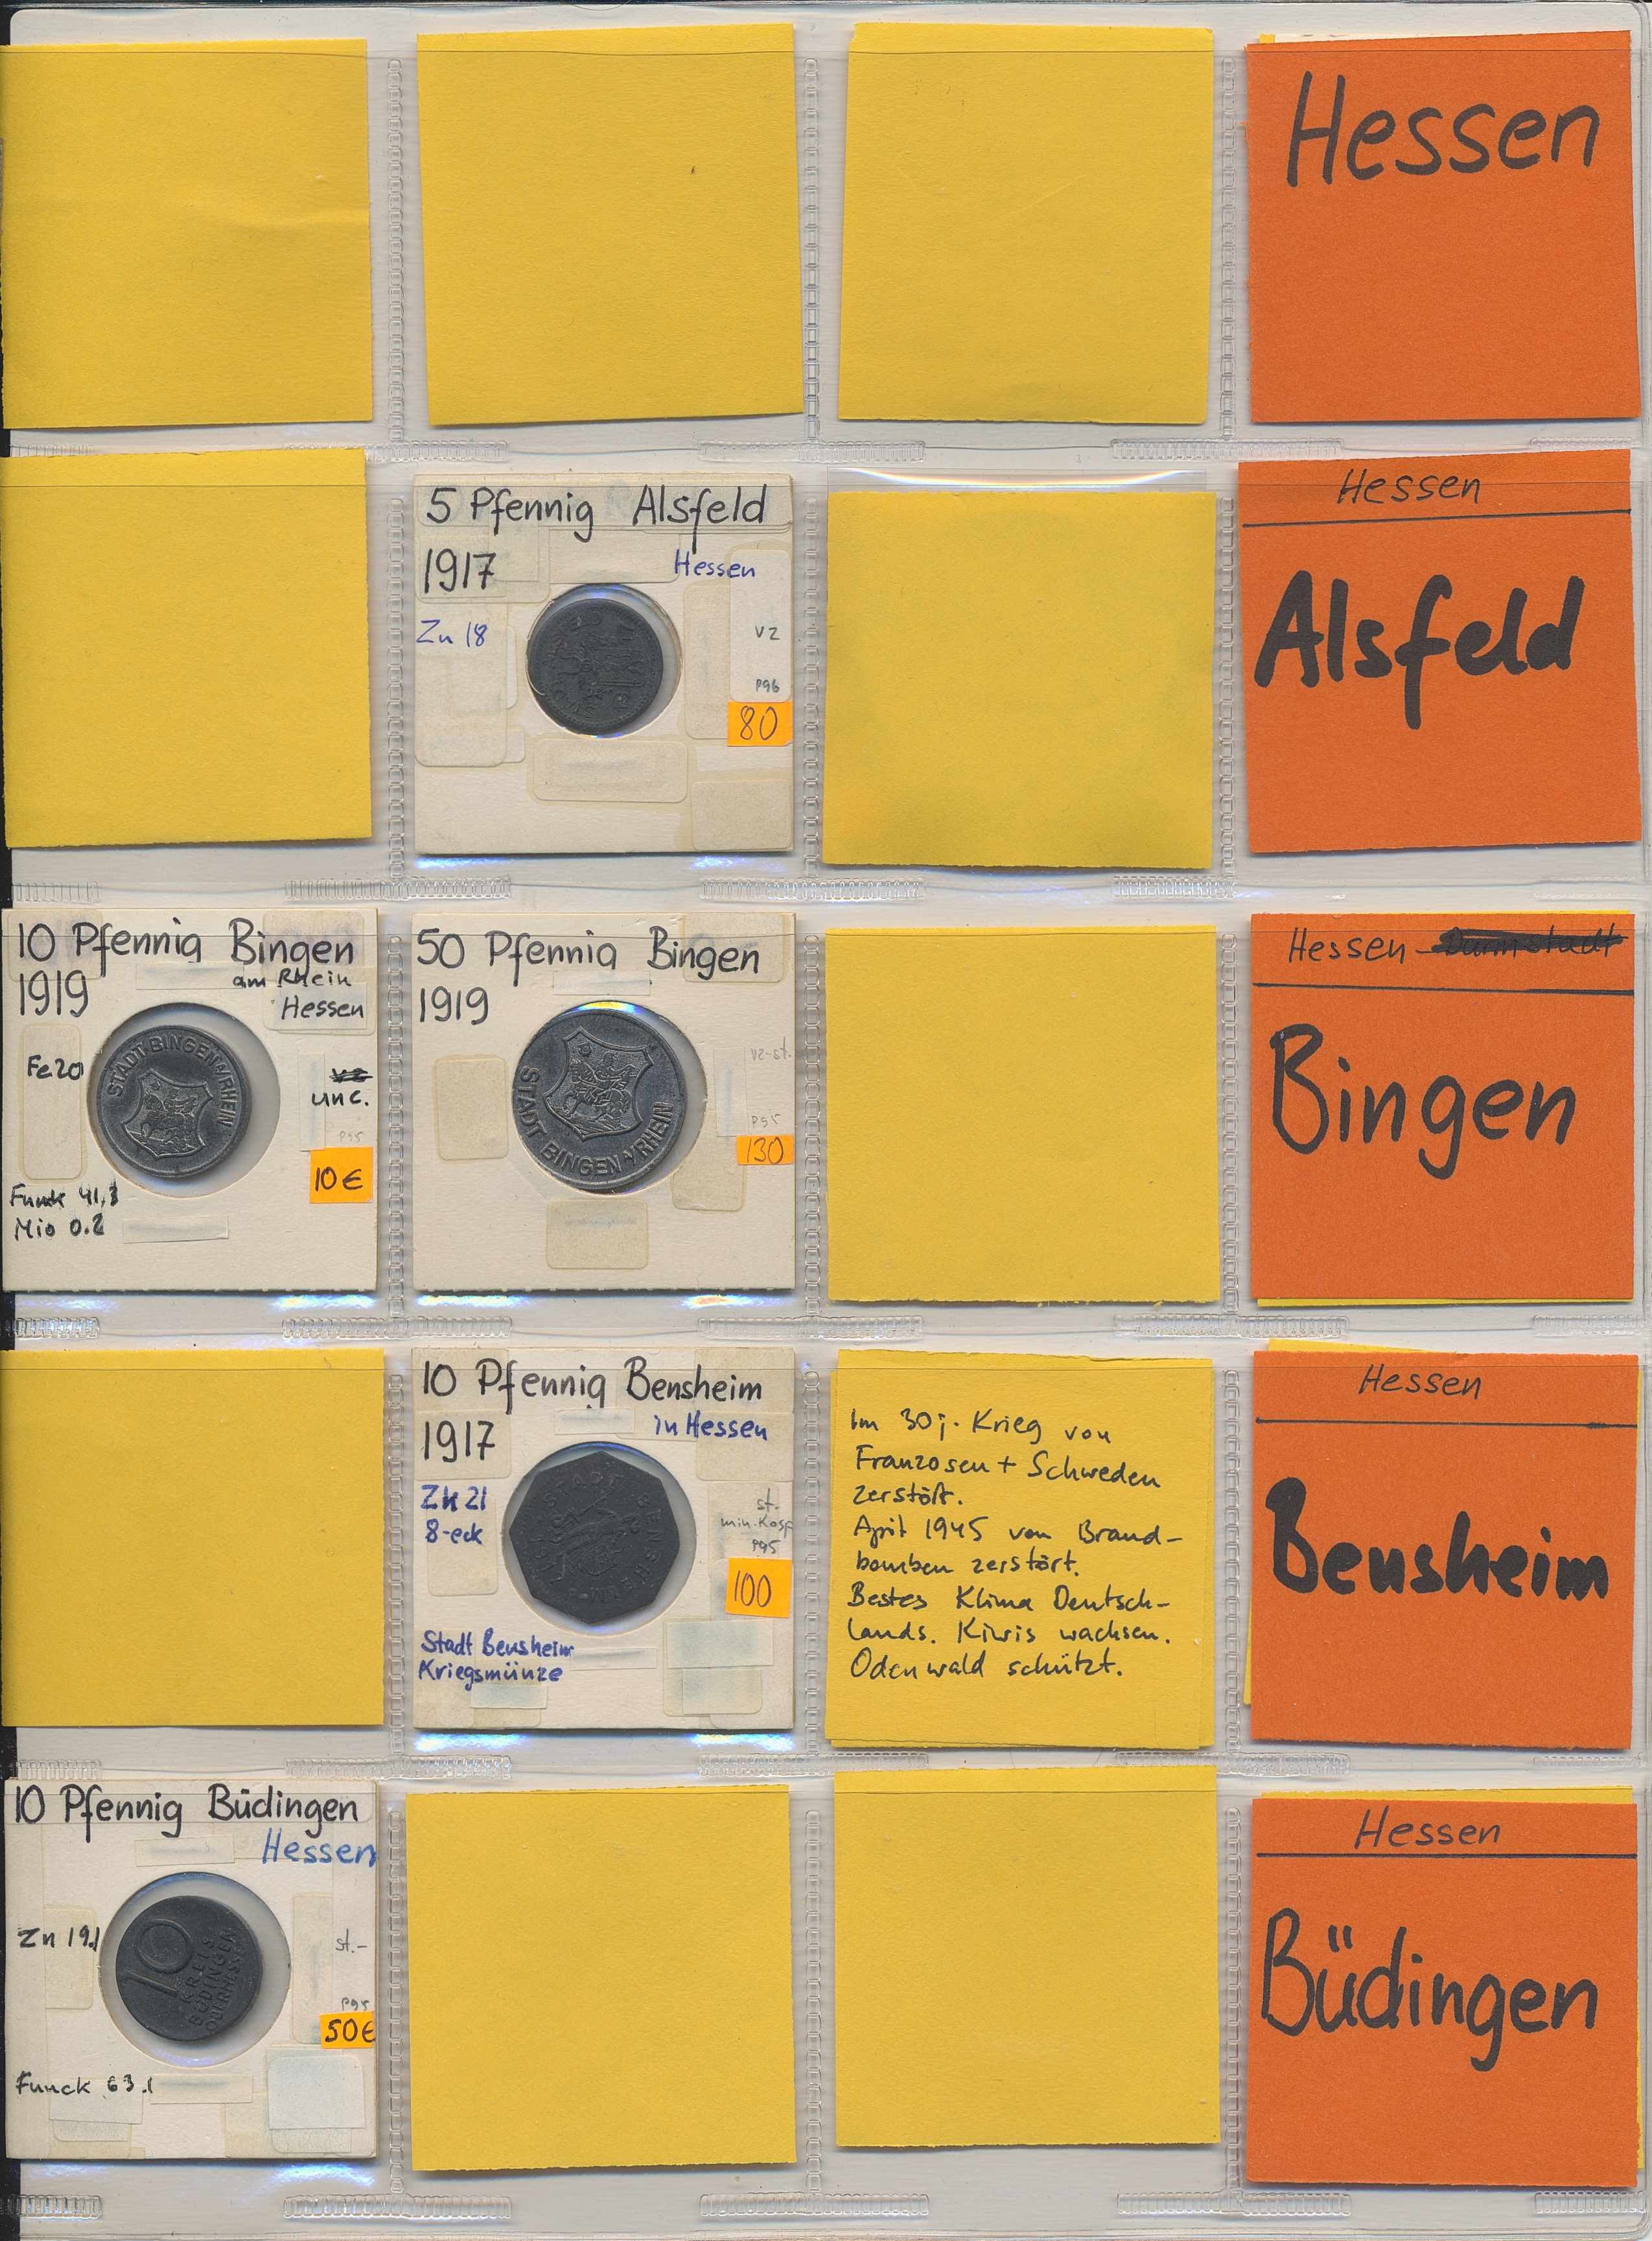 Hessen
5 Pfennig Alsfeld
1917
Hessen
Zn 18
vz
P96
80
Hessen
Alsfeld
10 Pfennig Bingen
1919
am Rhein
Hessen
Fe20
unc.
P95
10€
Funck 41,3
Mio 0.2
STADT BINGEN A/RHEIN
50 Pfennig Bingen
1919
vz-st.
P95
130
STADT BINGEN A/RHEIN
Hessen-Darmstadt
Bingen
10 Pfennig Bensheim
1917
in Hessen
Zn 21
8-eck
st.
min. Kosp
P95
100
Stadt Bensheim
Kriegsmünze
STADT BENSHEIM
Im 30j. Krieg von
Franzosen + Schweden
zerstört.
April 1945 von Brand-
bomben zerstört.
Bestes Klima Deutsch-
lands. Kiwis wachsen.
Odenwald schützt.
Hessen
Bensheim
10 Pfennig Büdingen
Hessen
Zn 19.1
st.-
P95
50€
Funck 63.1
10
KREIS
BÜDINGEN
OBERHESSEN
Hessen
Büdingen